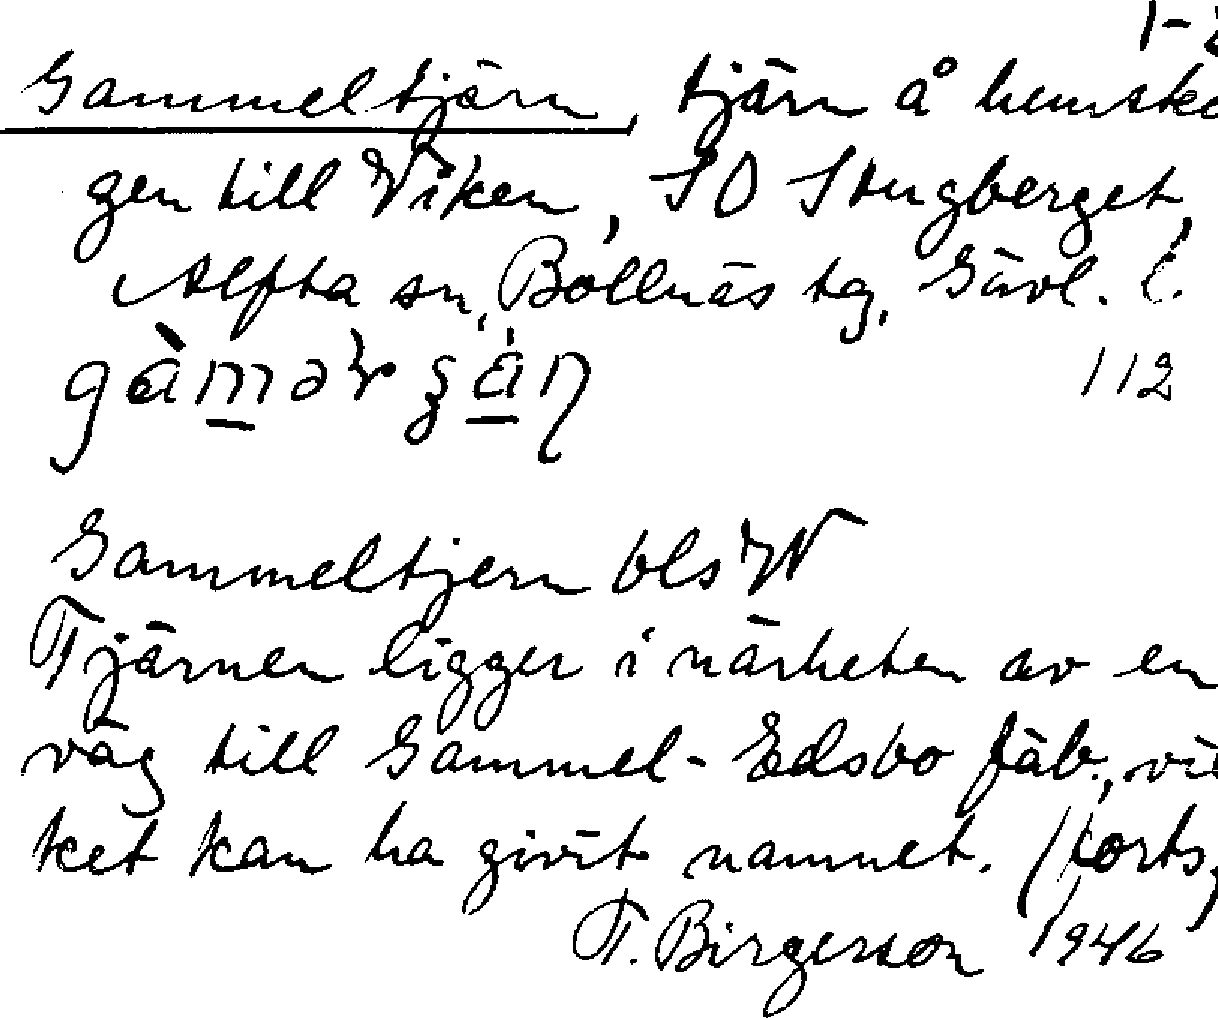 1-2
Gammeltjärn, tjärn å hemsko
gen till Viken, SO Stugberget,
Alfta sn, Bollnäs tg, Gävl. l.
112
Gammeltjern bls
Tjärnen ligger i närheten av en
väg till Gammel-Edsbo fäb., vil
ket kan ha givit namnet. (forts)
T. Birgerson 1946